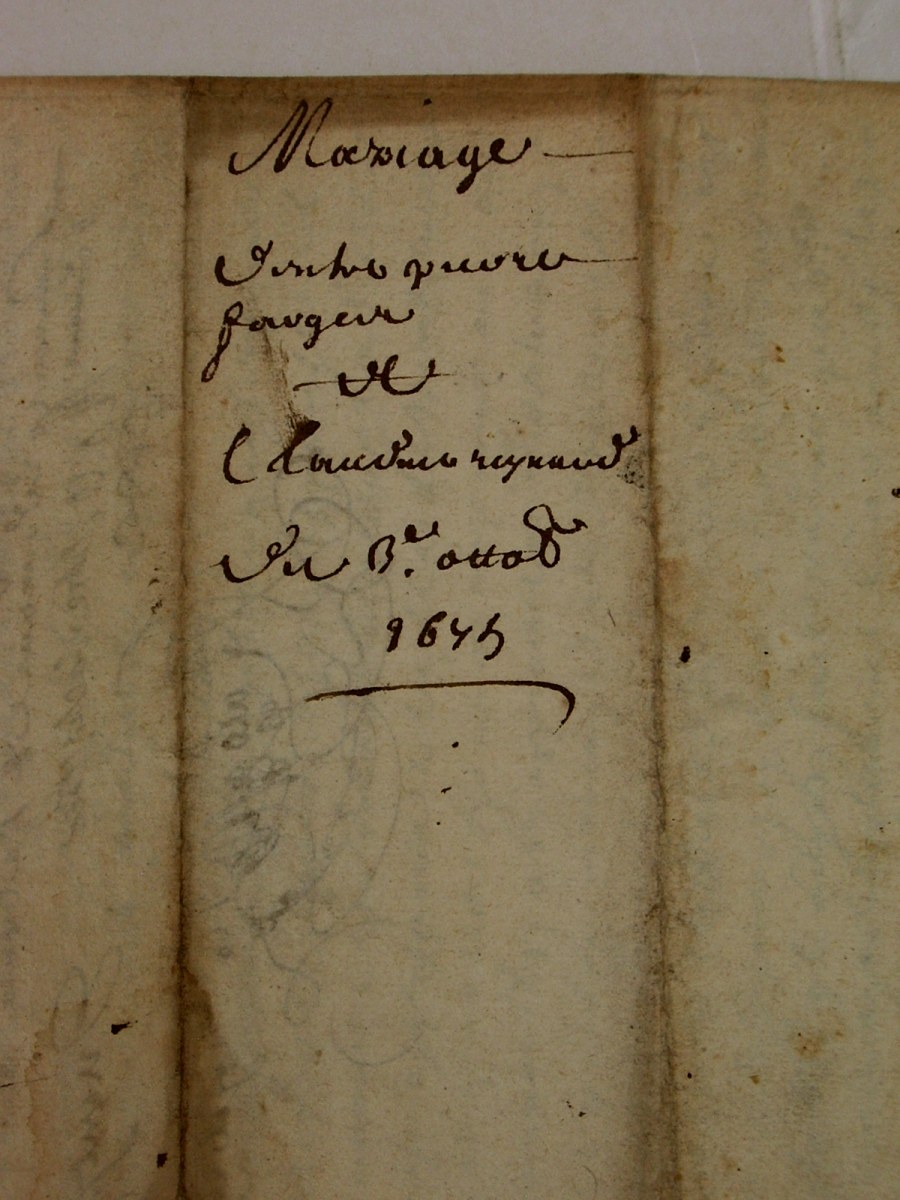 Mariage
D'entre pierre
fargeir
et
Claudine reynaud
Du 3.e octob
1675